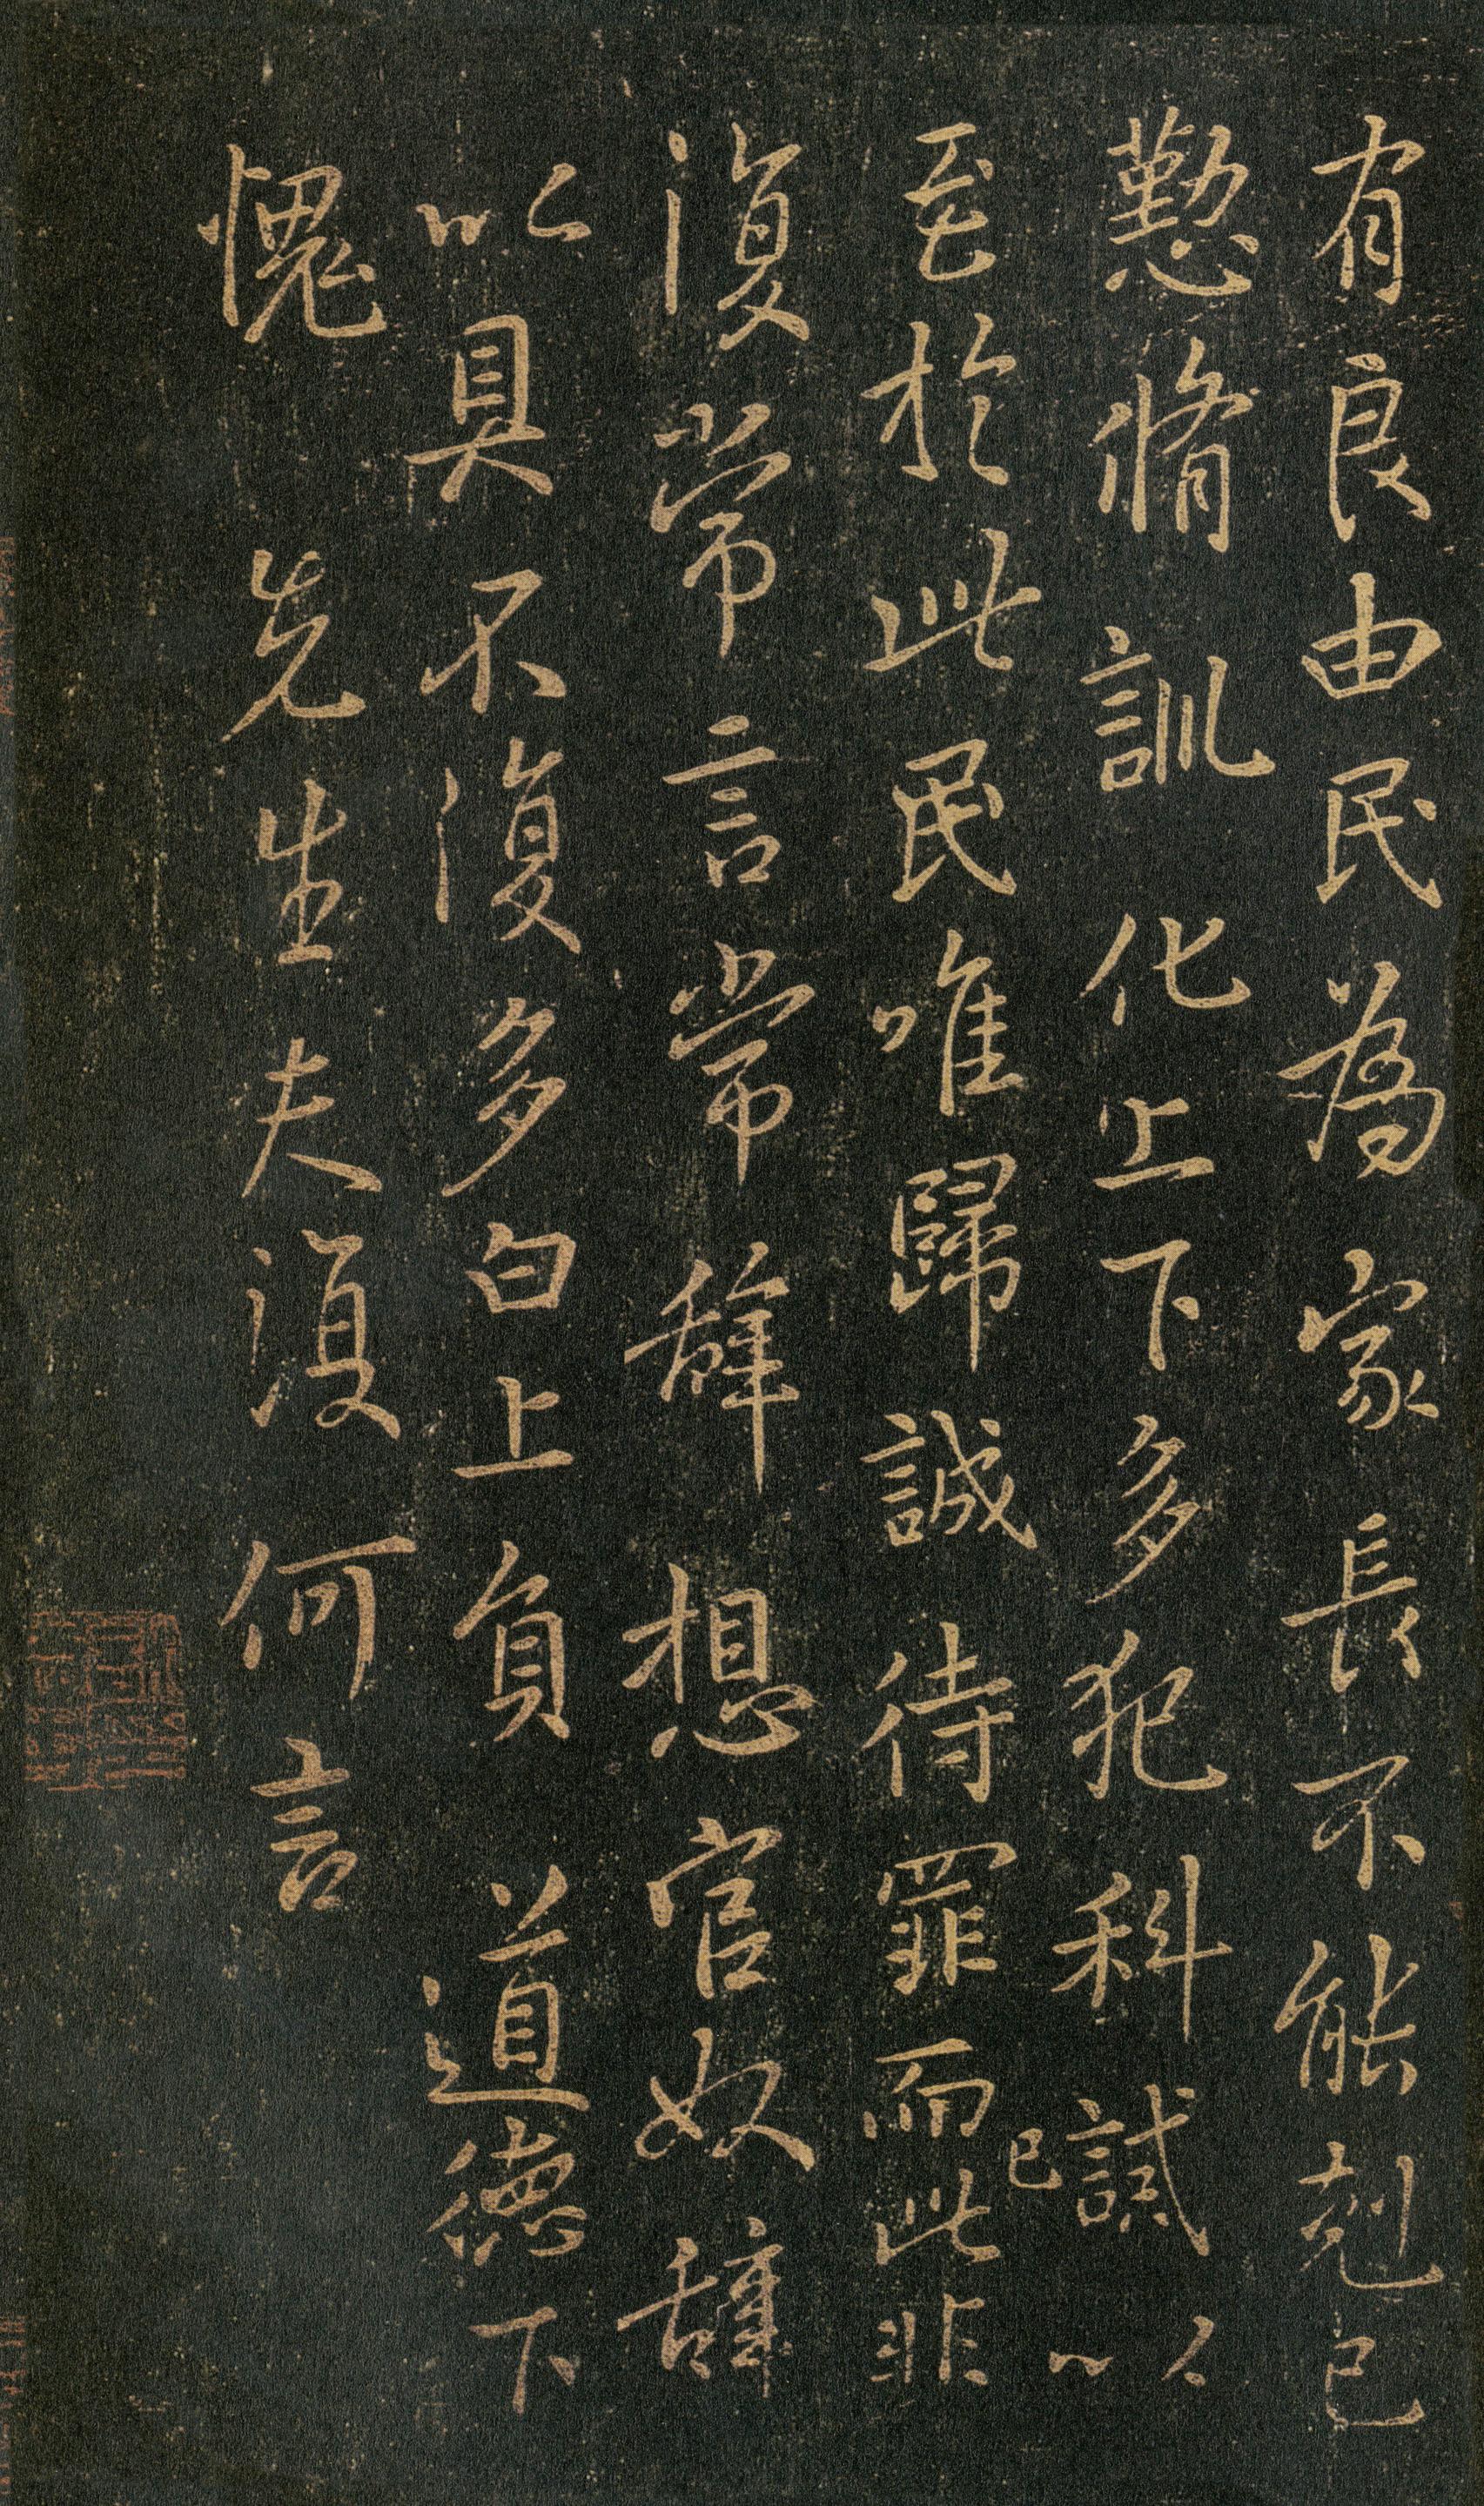 有良由民為家長不能剋己
懃脩訓化上下多犯科誡以
至於此民唯歸誠待罪而此非
復常言常辭想官奴辭
已
以具不復多白上負道德下
愧先生夫復何言